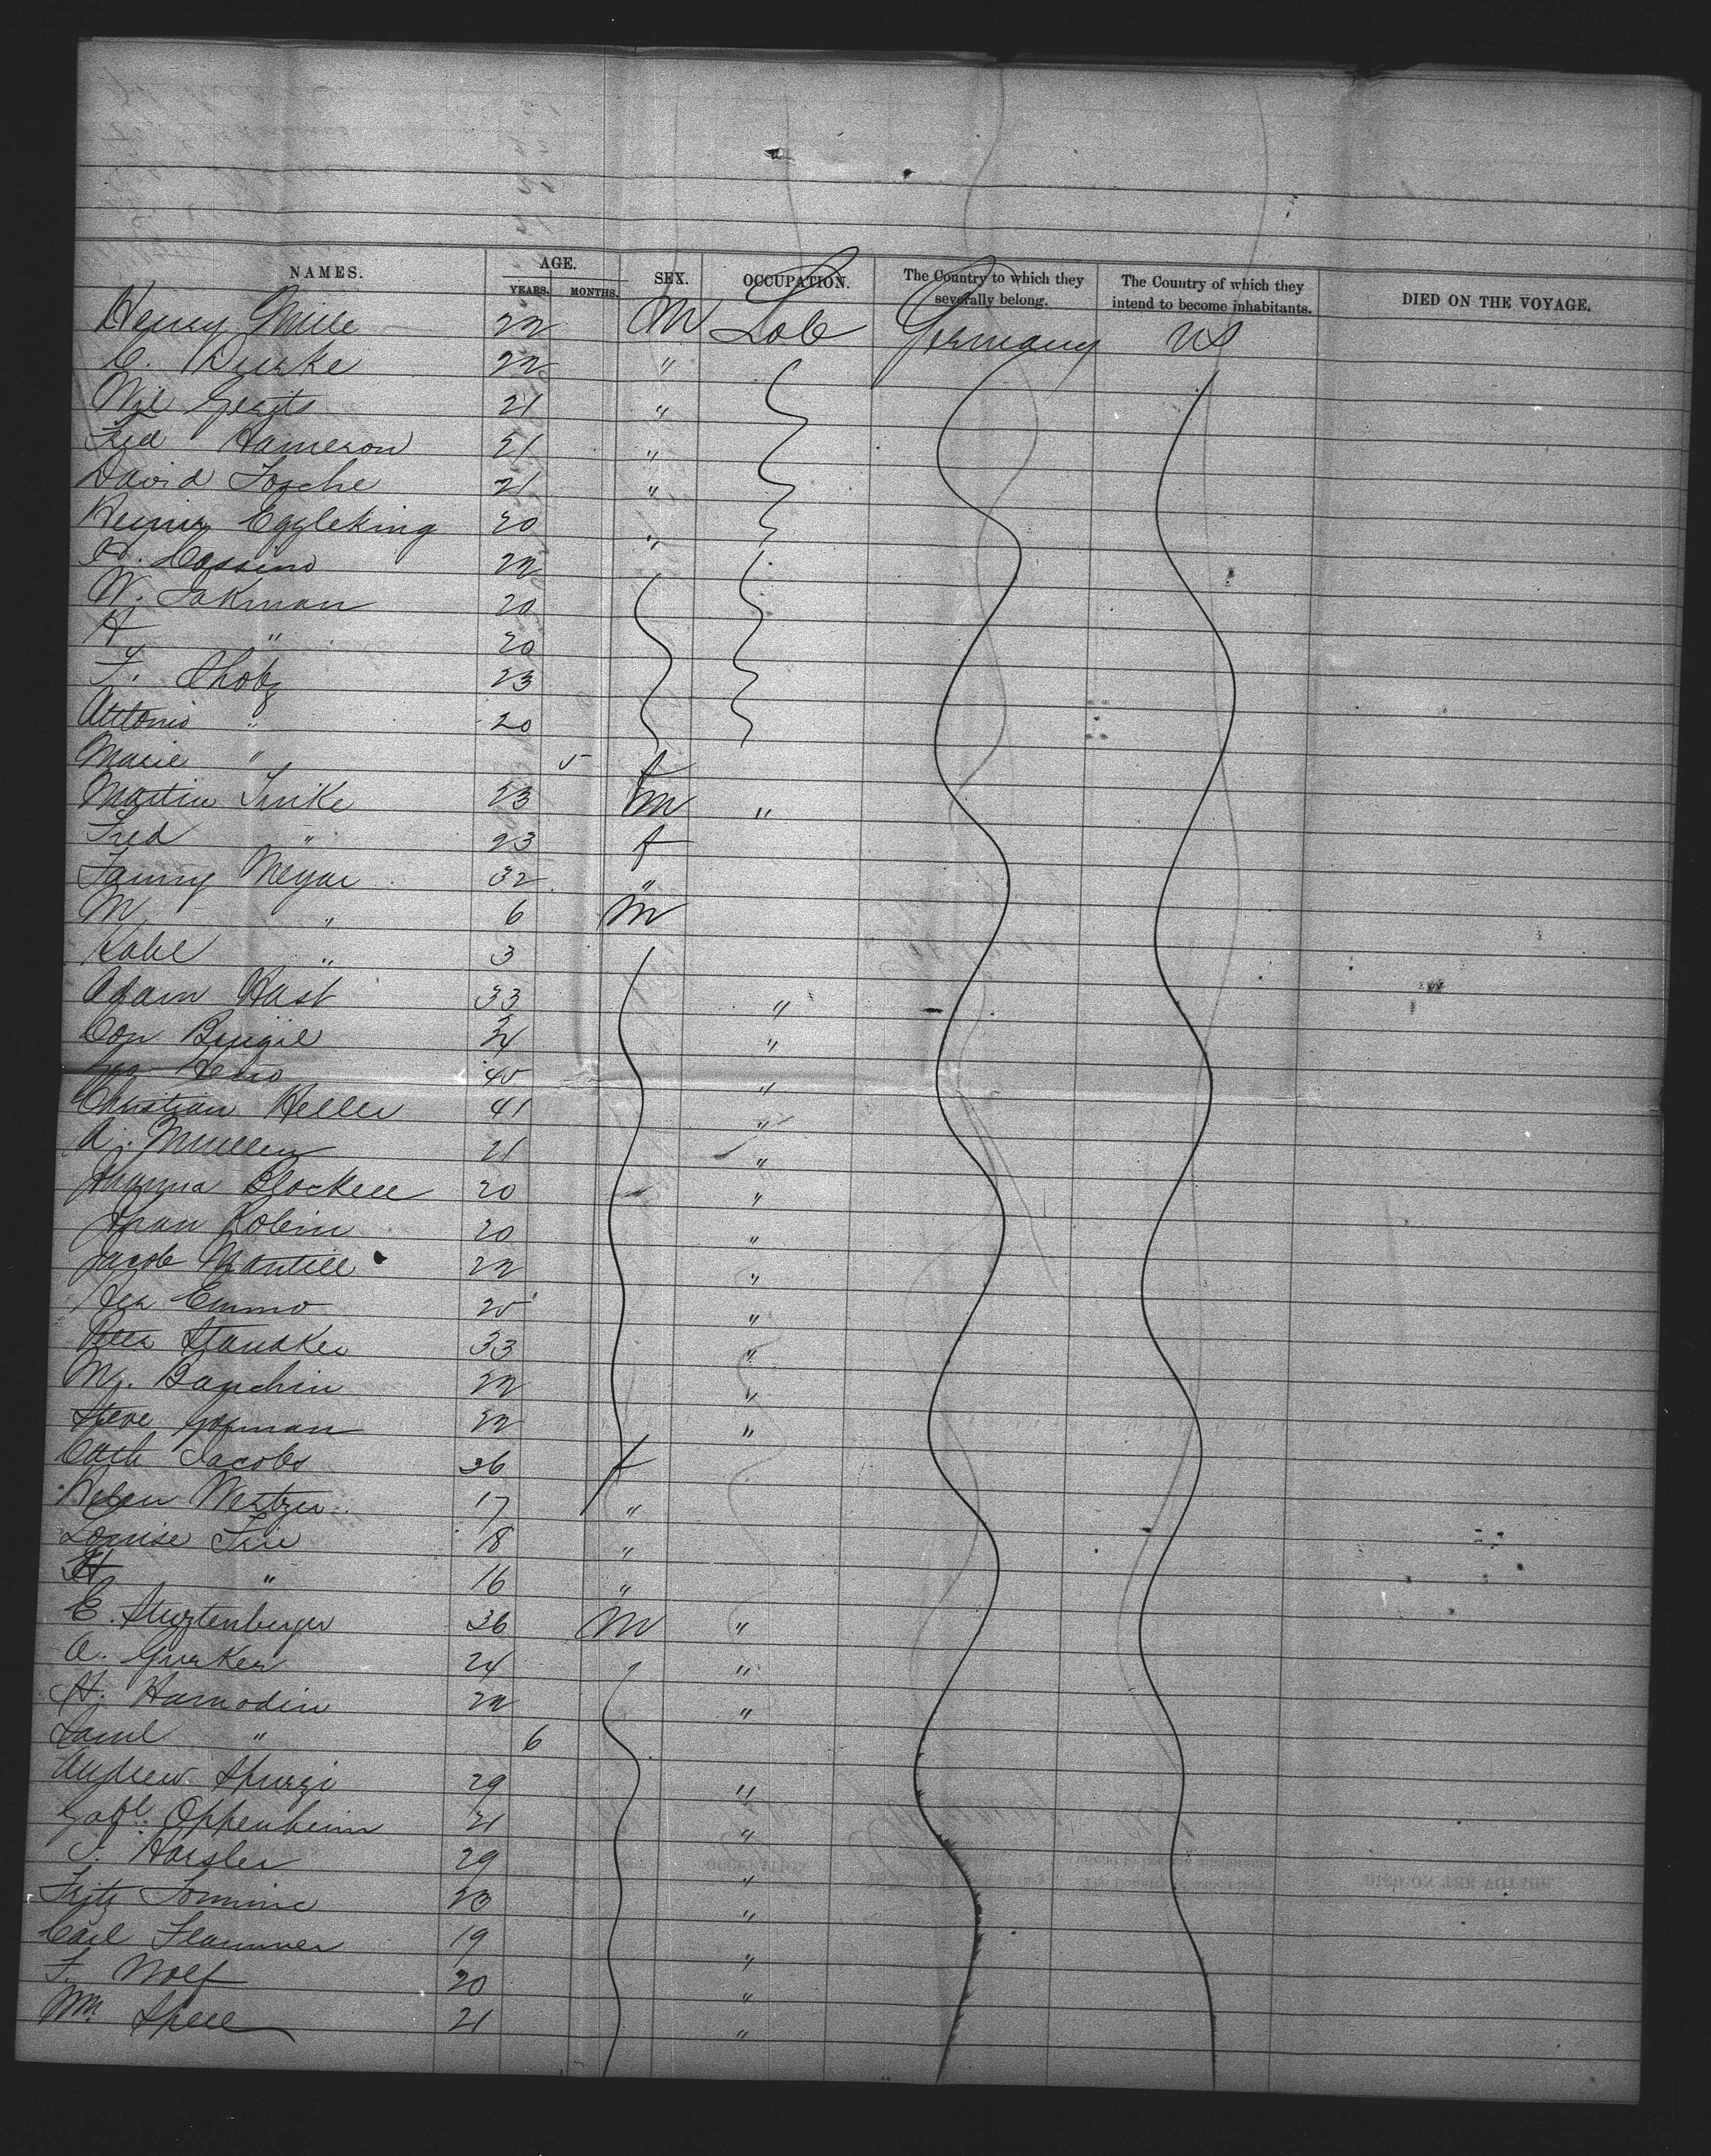 NAMES. AGE. SEX. OCCUPATION. The Country to which they severally belong. The Country of which they intend to become inhabitants. DIED ON THE VOYAGE.
YEARS. MONTHS.
Henry 22 M Lab Germany US
C. Durke 22 "
Wil Gerjts 21 "
Fred Hameron 21 "
David Losche 21 "
Eggleking 20 "
Cassino 22
W. Lakman 20
H " 20
F. Shotz 23
Antonio " 20
Marie " 5 f
Martin Finke 23 M "
Fred " 23 f
Fanny Meyar 32 "
M " 6 M
Kahl " 3
Adam Hast 33 "
Con 24 "
Geo 45 "
Christian Heller 41 "
A. Muller 21 "
Blockell 20 "
Robin 20 "
Jacob Mantell 22 "
Emmo 25 "
Peter Standker 33 "
M. Banchin 22 "
Steve Gorman 22 "
Cath Jacobs 36 f
17 "
Louise 18 "
H " 16 "
E. Sturtenberger 36 M "
A. Gurker 24 "
H. Hamodin 22 "
Saml " 6
Andrew Spurgi 29 "
Gabl. Oppenheim 21 "
Harsler 29 "
Fritz Lomine 23 "
Carl Flammer 19 "
F. Wolf 20 "
Wm. Spell 21 "